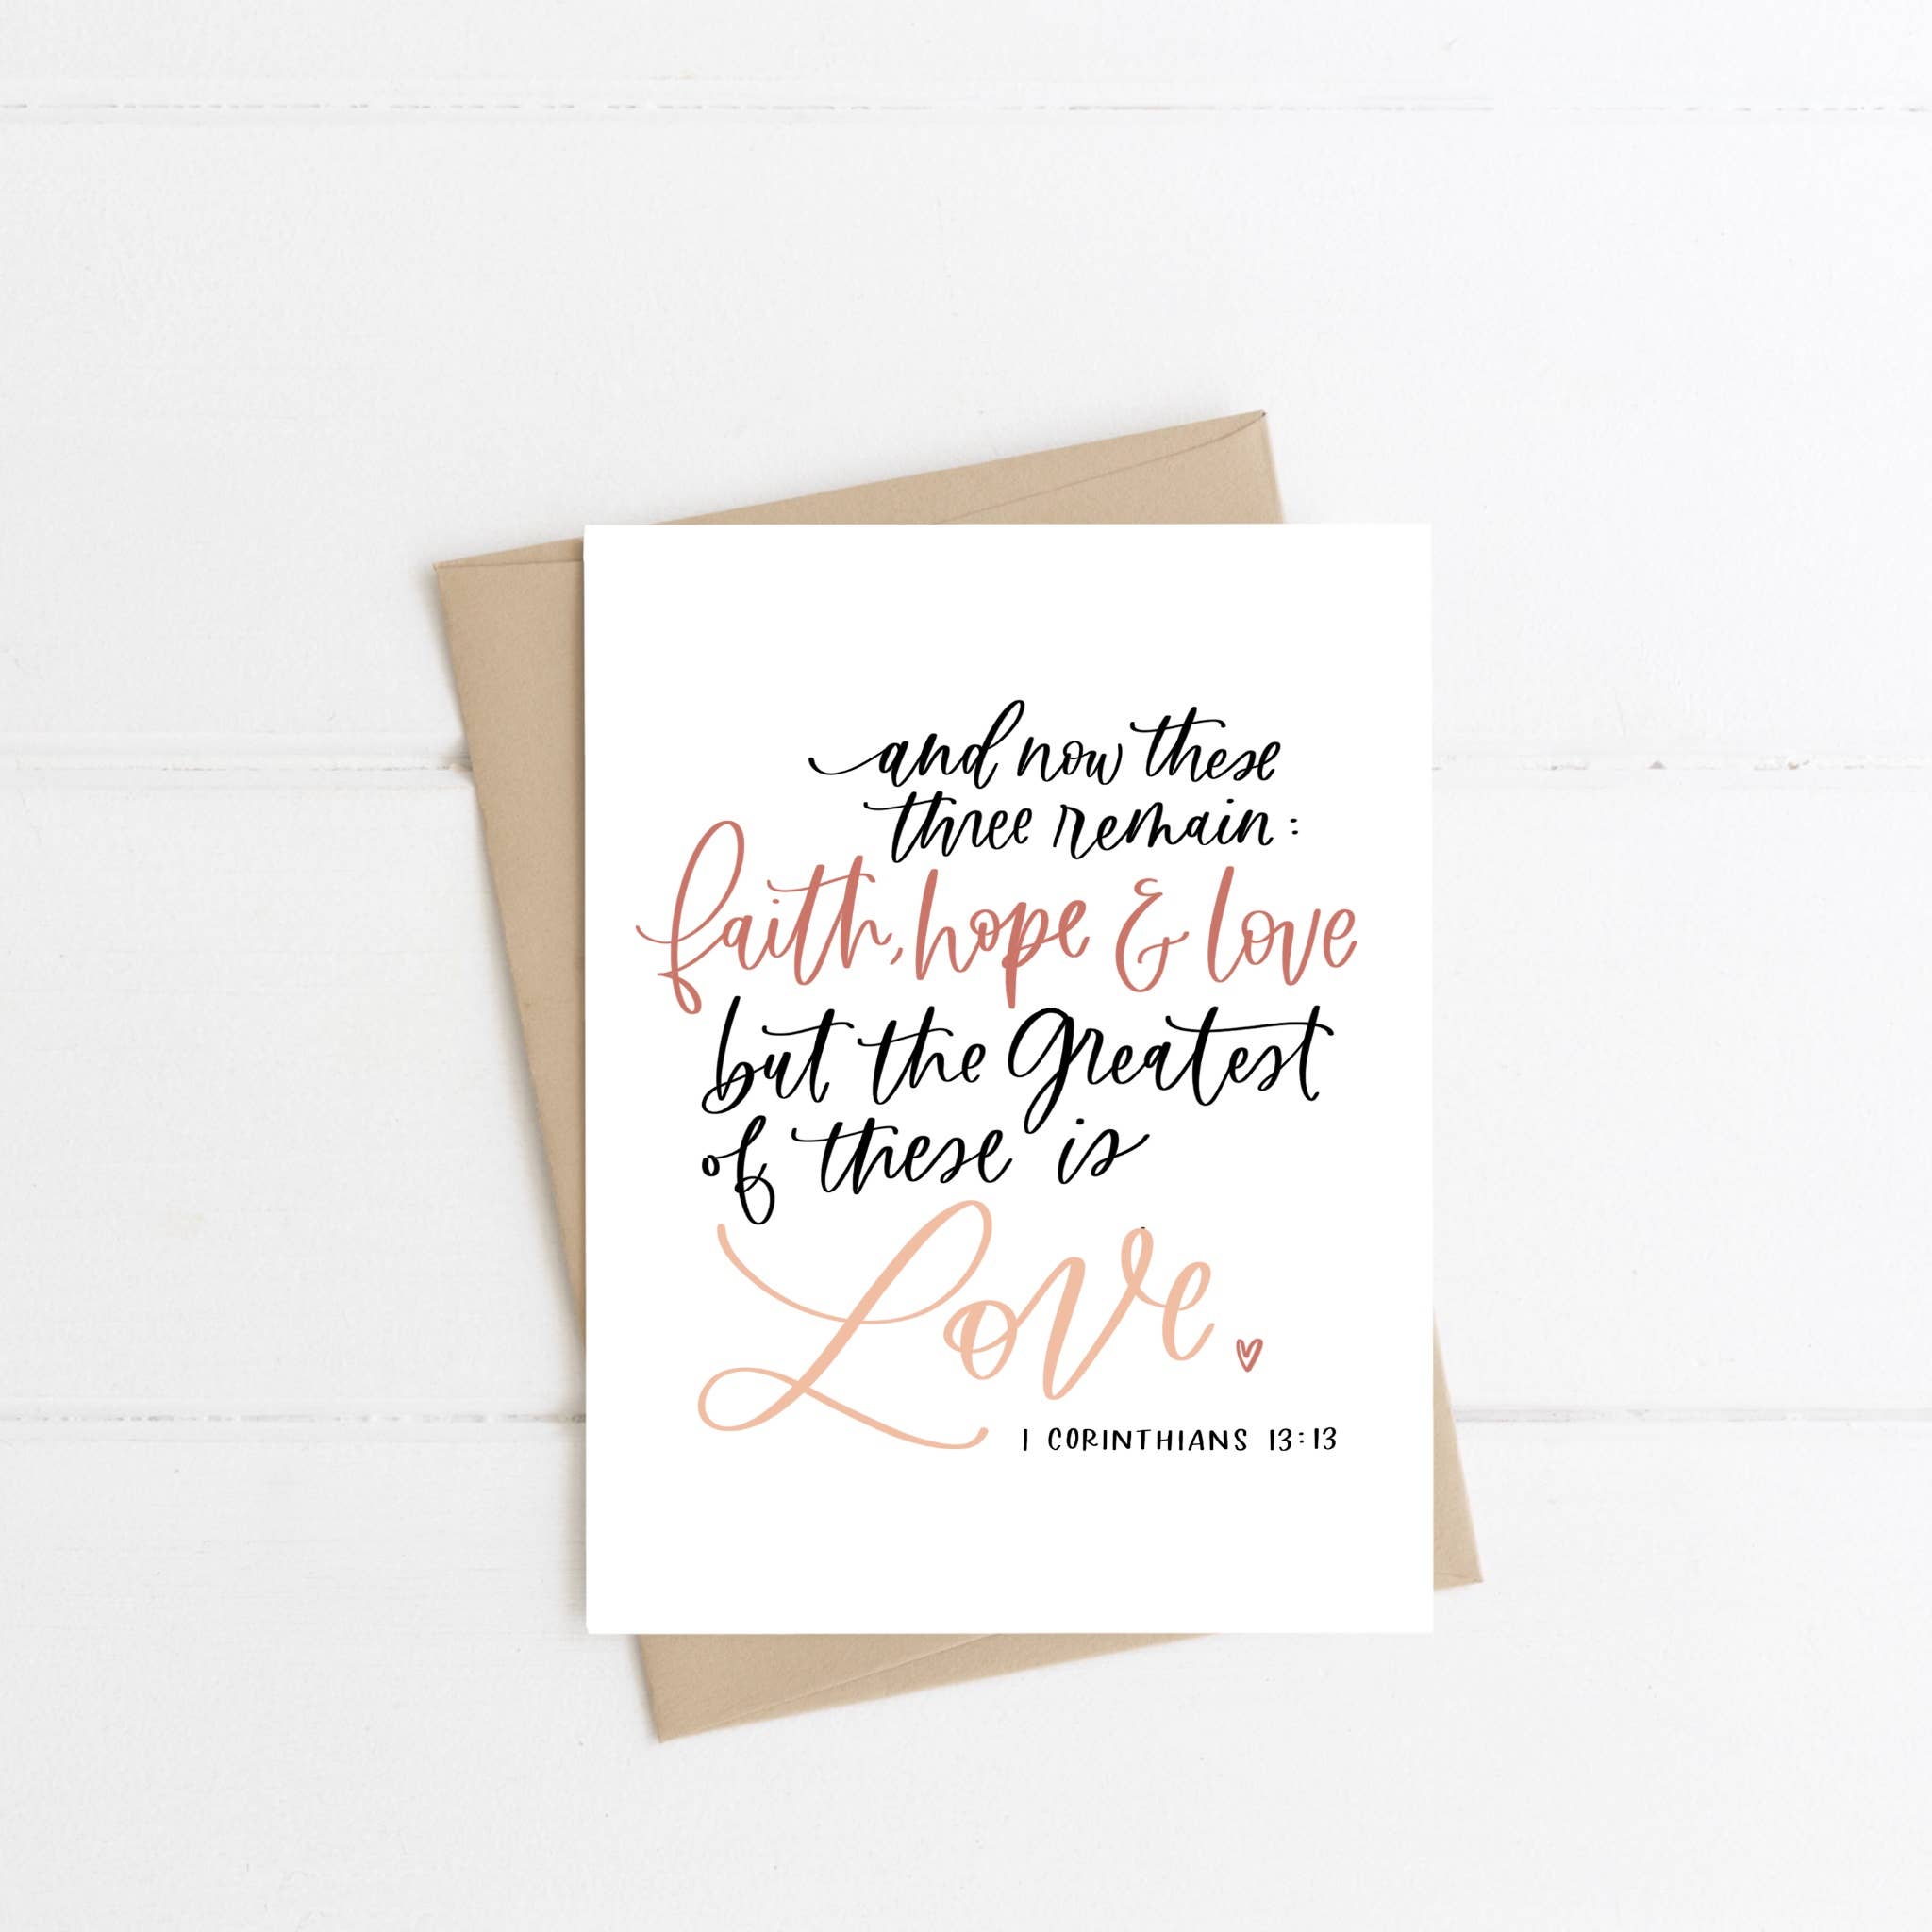 and now these
three remain:
faith, hope & love
but the Greatest
of these is
Love.
1 CORINTHIANS 13:13